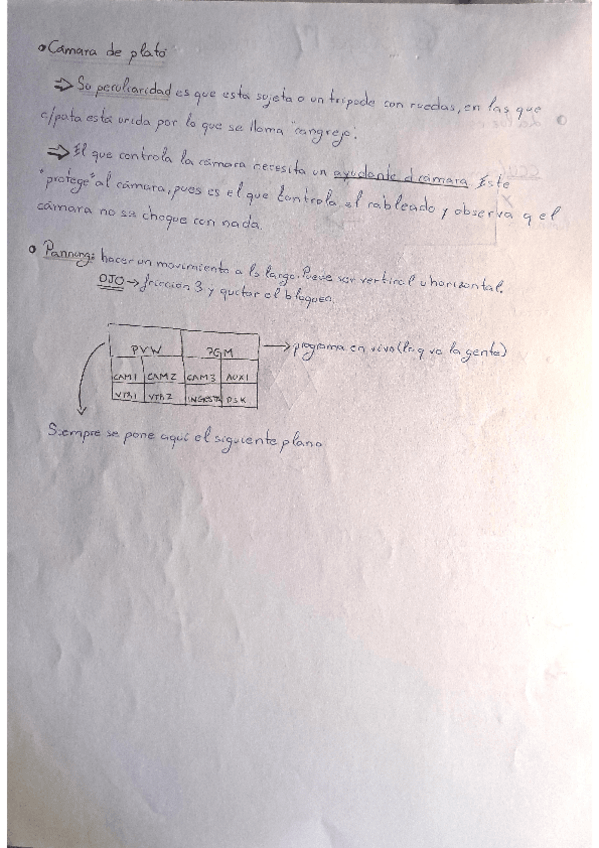 Cámara de plató
⇒ Su peculiaridad es que esta sujeta a un trípode con ruedas, en las que
c/pata está unida por lo que se llama "cangrejo".
⇒ El que controla la cámara necesita un ayudante d cámara. Este
"protege" al cámara, pues es el que controla el cableado y observa q el
cámara no su choque con nada.
Panning: hacer un movimiento a lo largo. Puede ser vertical u horizontal.
OJO → fricción 3 y quitar el bloqueo.
PVW PGM → programa en vivo (lo q ve la gente)
CAM1 CAM2 CAM3 AUX1
VTR1 VTR2 INGEST DSK
Siempre se pone aquí el siguiente plano